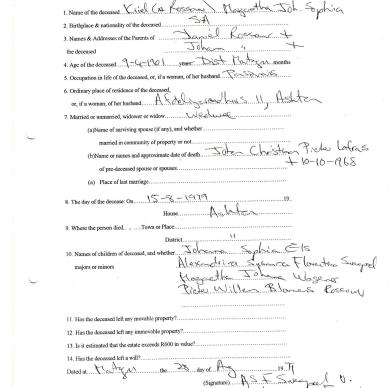 1. Name of the deceased Kriel (* Rossouw) Magaretha Joh Sophia
2. Birthplace & nationality of the deceased SA
3. Names & Addresses of the Parents of Daniel Rossouw +
the deceased Johan " +
4. Age of the deceased 9-4-1901 years Dist months
5. Occupation in life of the deceased, or, if a woman, of her husband
6. Ordinary place of residence of the deceased,
or, if a woman, of her husband 11, Ashton
7. Married or unmarried, widower or widow Weduwee
(a)Name of surviving spouse (if any), and whether
married in community of property or not
(b)Name or names and approximate date of death Christian Pieter
of pre-deceased spouse or spouses + 10-10-1968
(a) Place of last marriage
8. The day of the decease: On 15-8-1979 19
House Ashton
9. Where the person died. Town or Place
District "
10. Names of children of deceased, and whether Johanna Sophia Els
majors or minors
Magaretha Johana Wagener
Pieter Willem Rossouw
11. Has the deceased left any movable property?
12. Has the deceased left any immovable property?
13. Is it estimated that the estate exceeds R600 in value?
14. Has the deceased left a will?
Dated at the 28 day of Aug 19
(Signature) A S F